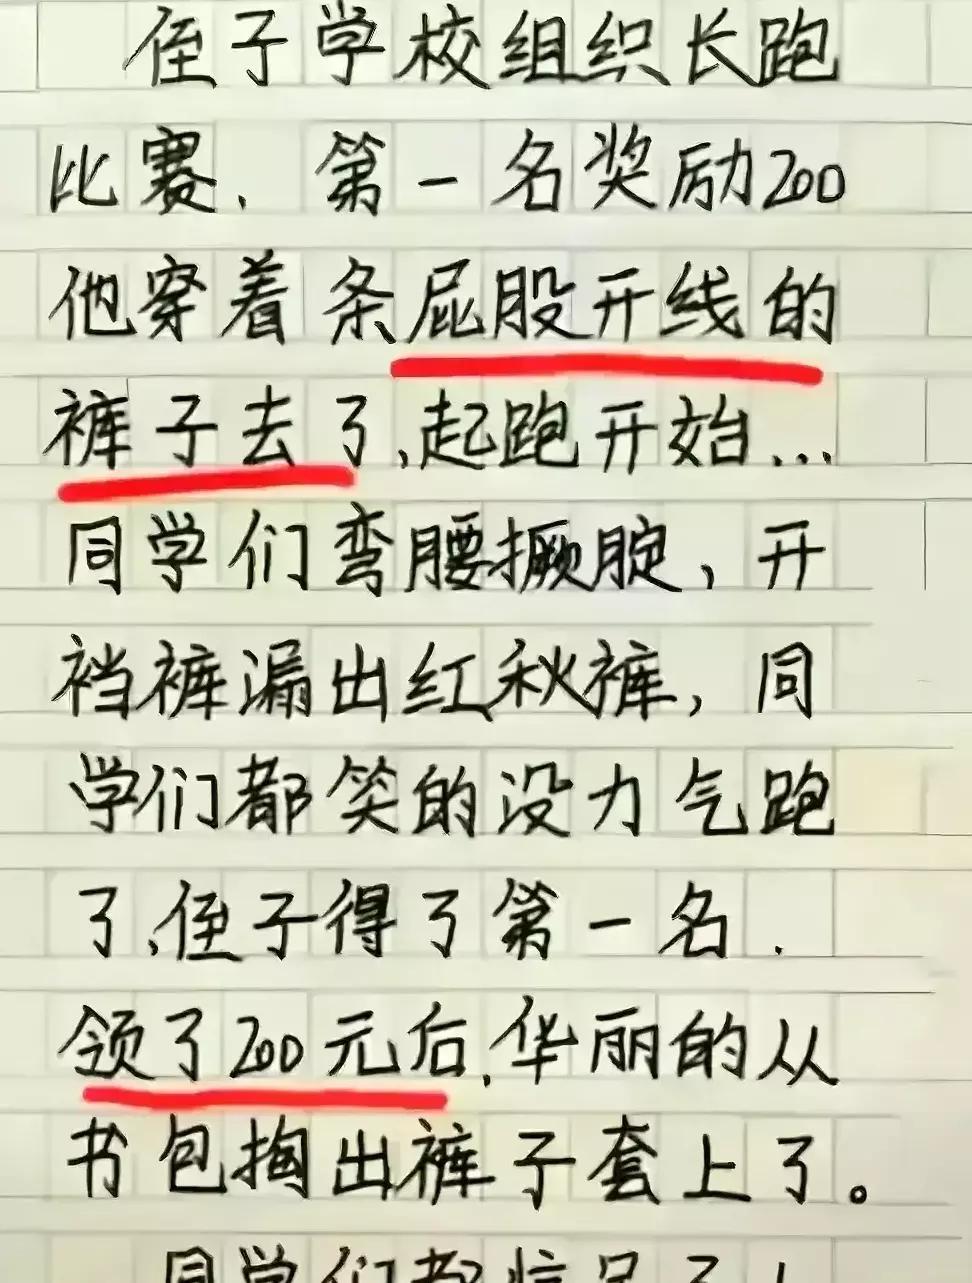 侄子学校组织长跑
比赛，第一名奖励200
他穿着条屁股开线的
裤子去了，起跑开始...
同学们弯腰撅腚，开
裆裤漏出红秋裤，同
学们都笑的没力气跑
了，侄子得了第一名.
领了200元后，华丽的从
书包掏出裤子套上了。
同学们都惊呆了！